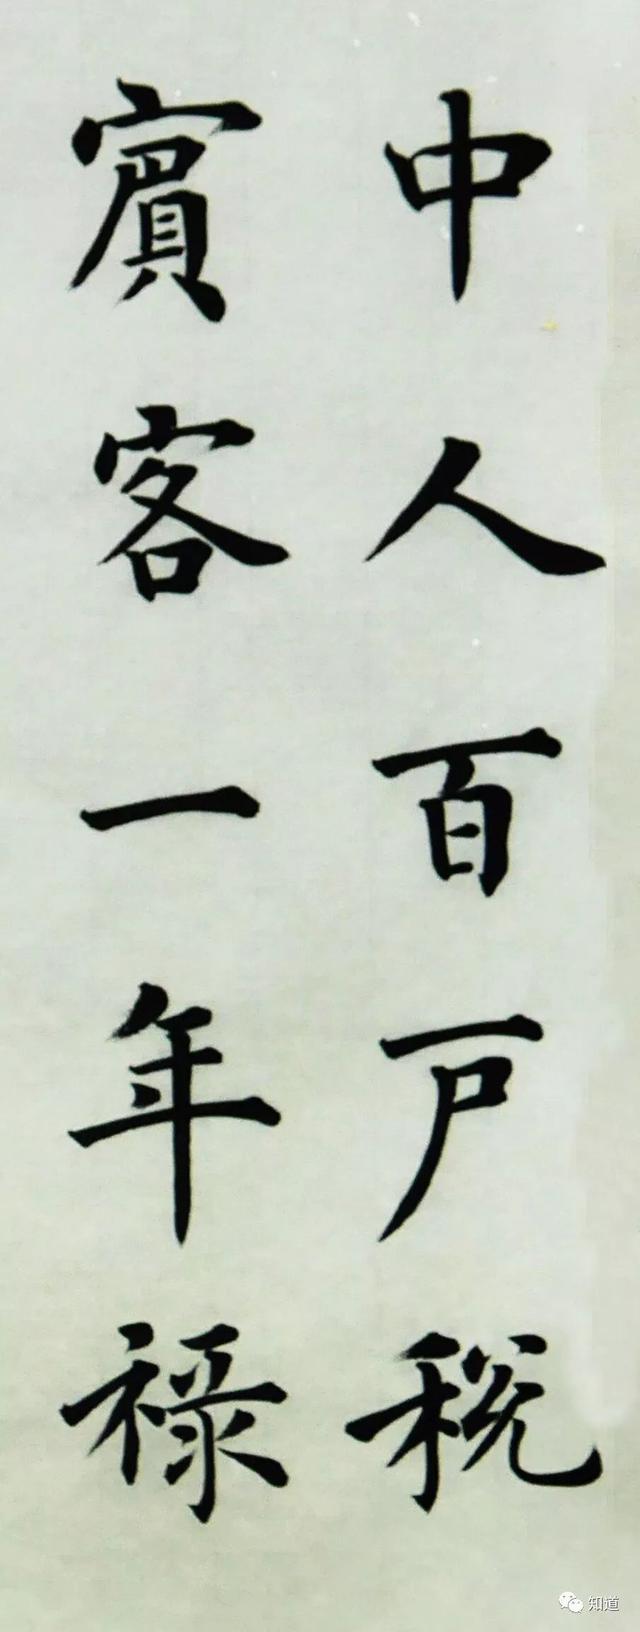 中人百戶税
賓客一年禄
知道